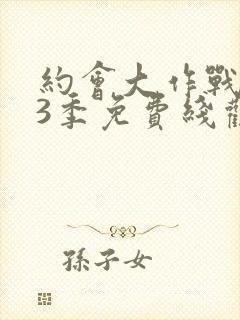 約會大作戰
3季免費綫觀
孫子女